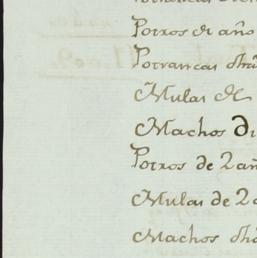 Potros de año
Potrancas dha
Mulas de
Machos di
Potros de 2 añ
Mulas de 2 a
Machos dho